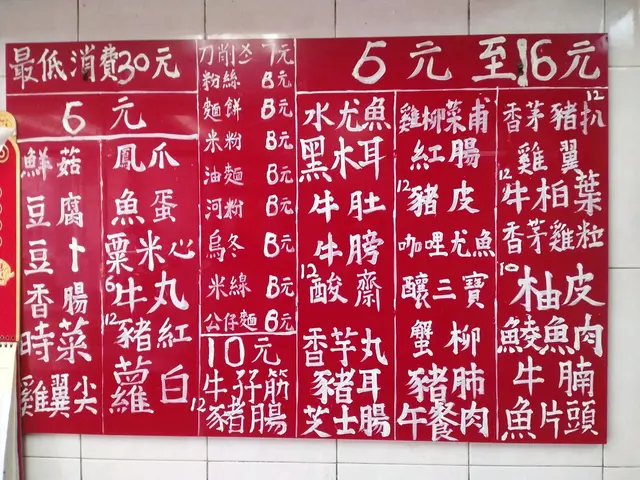 最低消費30元
6元
鮮菇
豆腐
豆卜
香腸
時菜
雞翼尖
鳳爪
魚蛋
粟米心
6牛丸
12豬紅
蘿白
刀削 7元
粉絲 8元
麵餅 8元
米粉 8元
油麵 8元
河粉 8元
烏冬 8元
米線 8元
公仔麵 8元
10元
牛孖筋
12豬腸
6元至16元
水尤魚
黑木耳
牛肚
牛膀
12酸齋
香芋丸
豬耳
芝士腸
雞柳菜甫
紅腸
12豬皮
咖哩尤魚
釀三寶
蟹柳
豬肺
午餐肉
香茅豬扒12
雞翼
12牛柏葉
香茅雞粒
10柚皮
鯪魚肉
牛腩
魚片頭